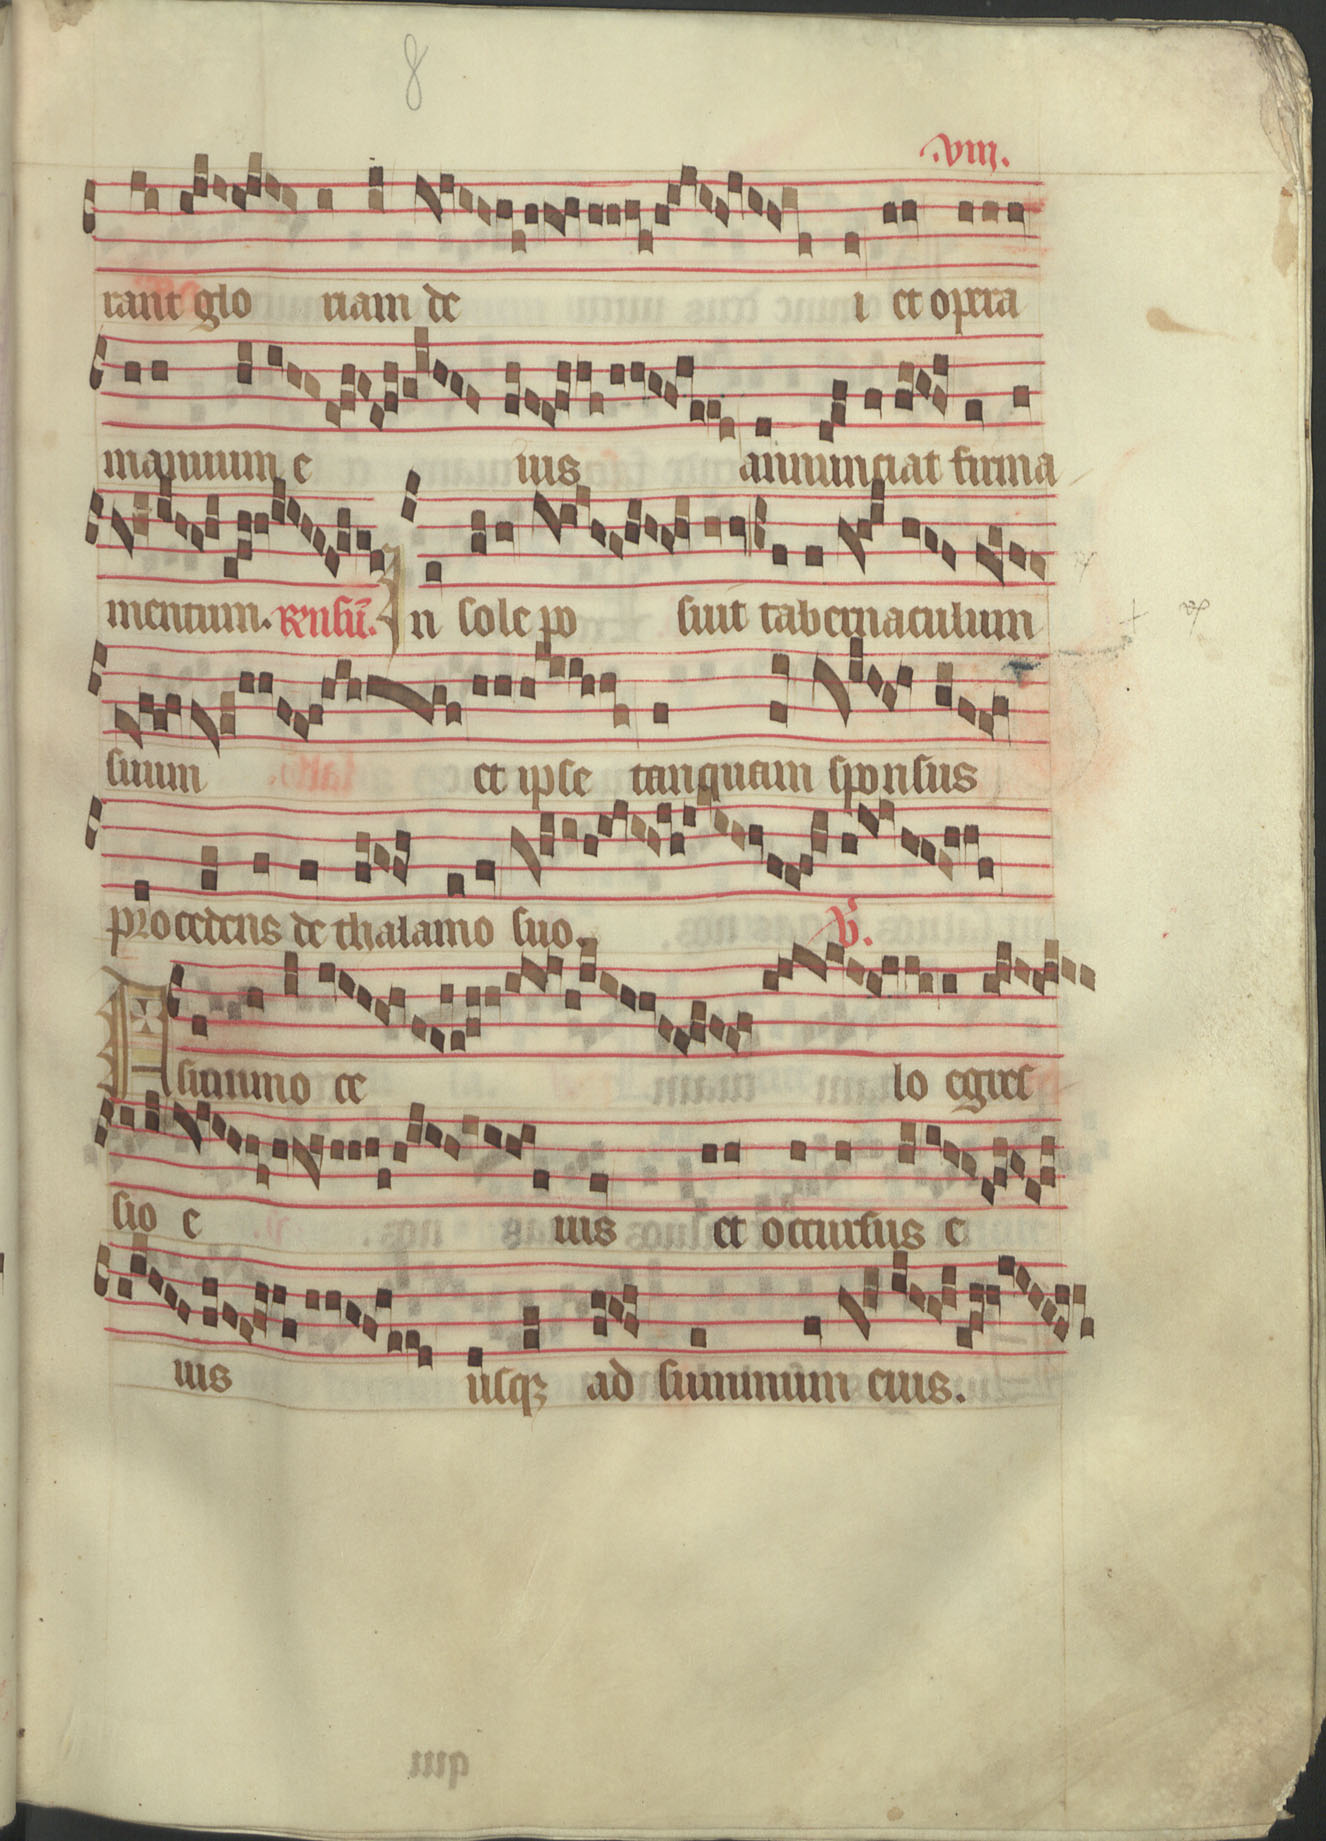 8
.viii.
rant glo riam de i et opera
manuum e ius annunciat firma
mentum. In sole po suit tabernaculum
suum et ipse tanquam sponsus
procedens de thalamo suo. V.
A summo ce lo egres
sio e ius et occursus e
ius usqꝫ ad summum eius.